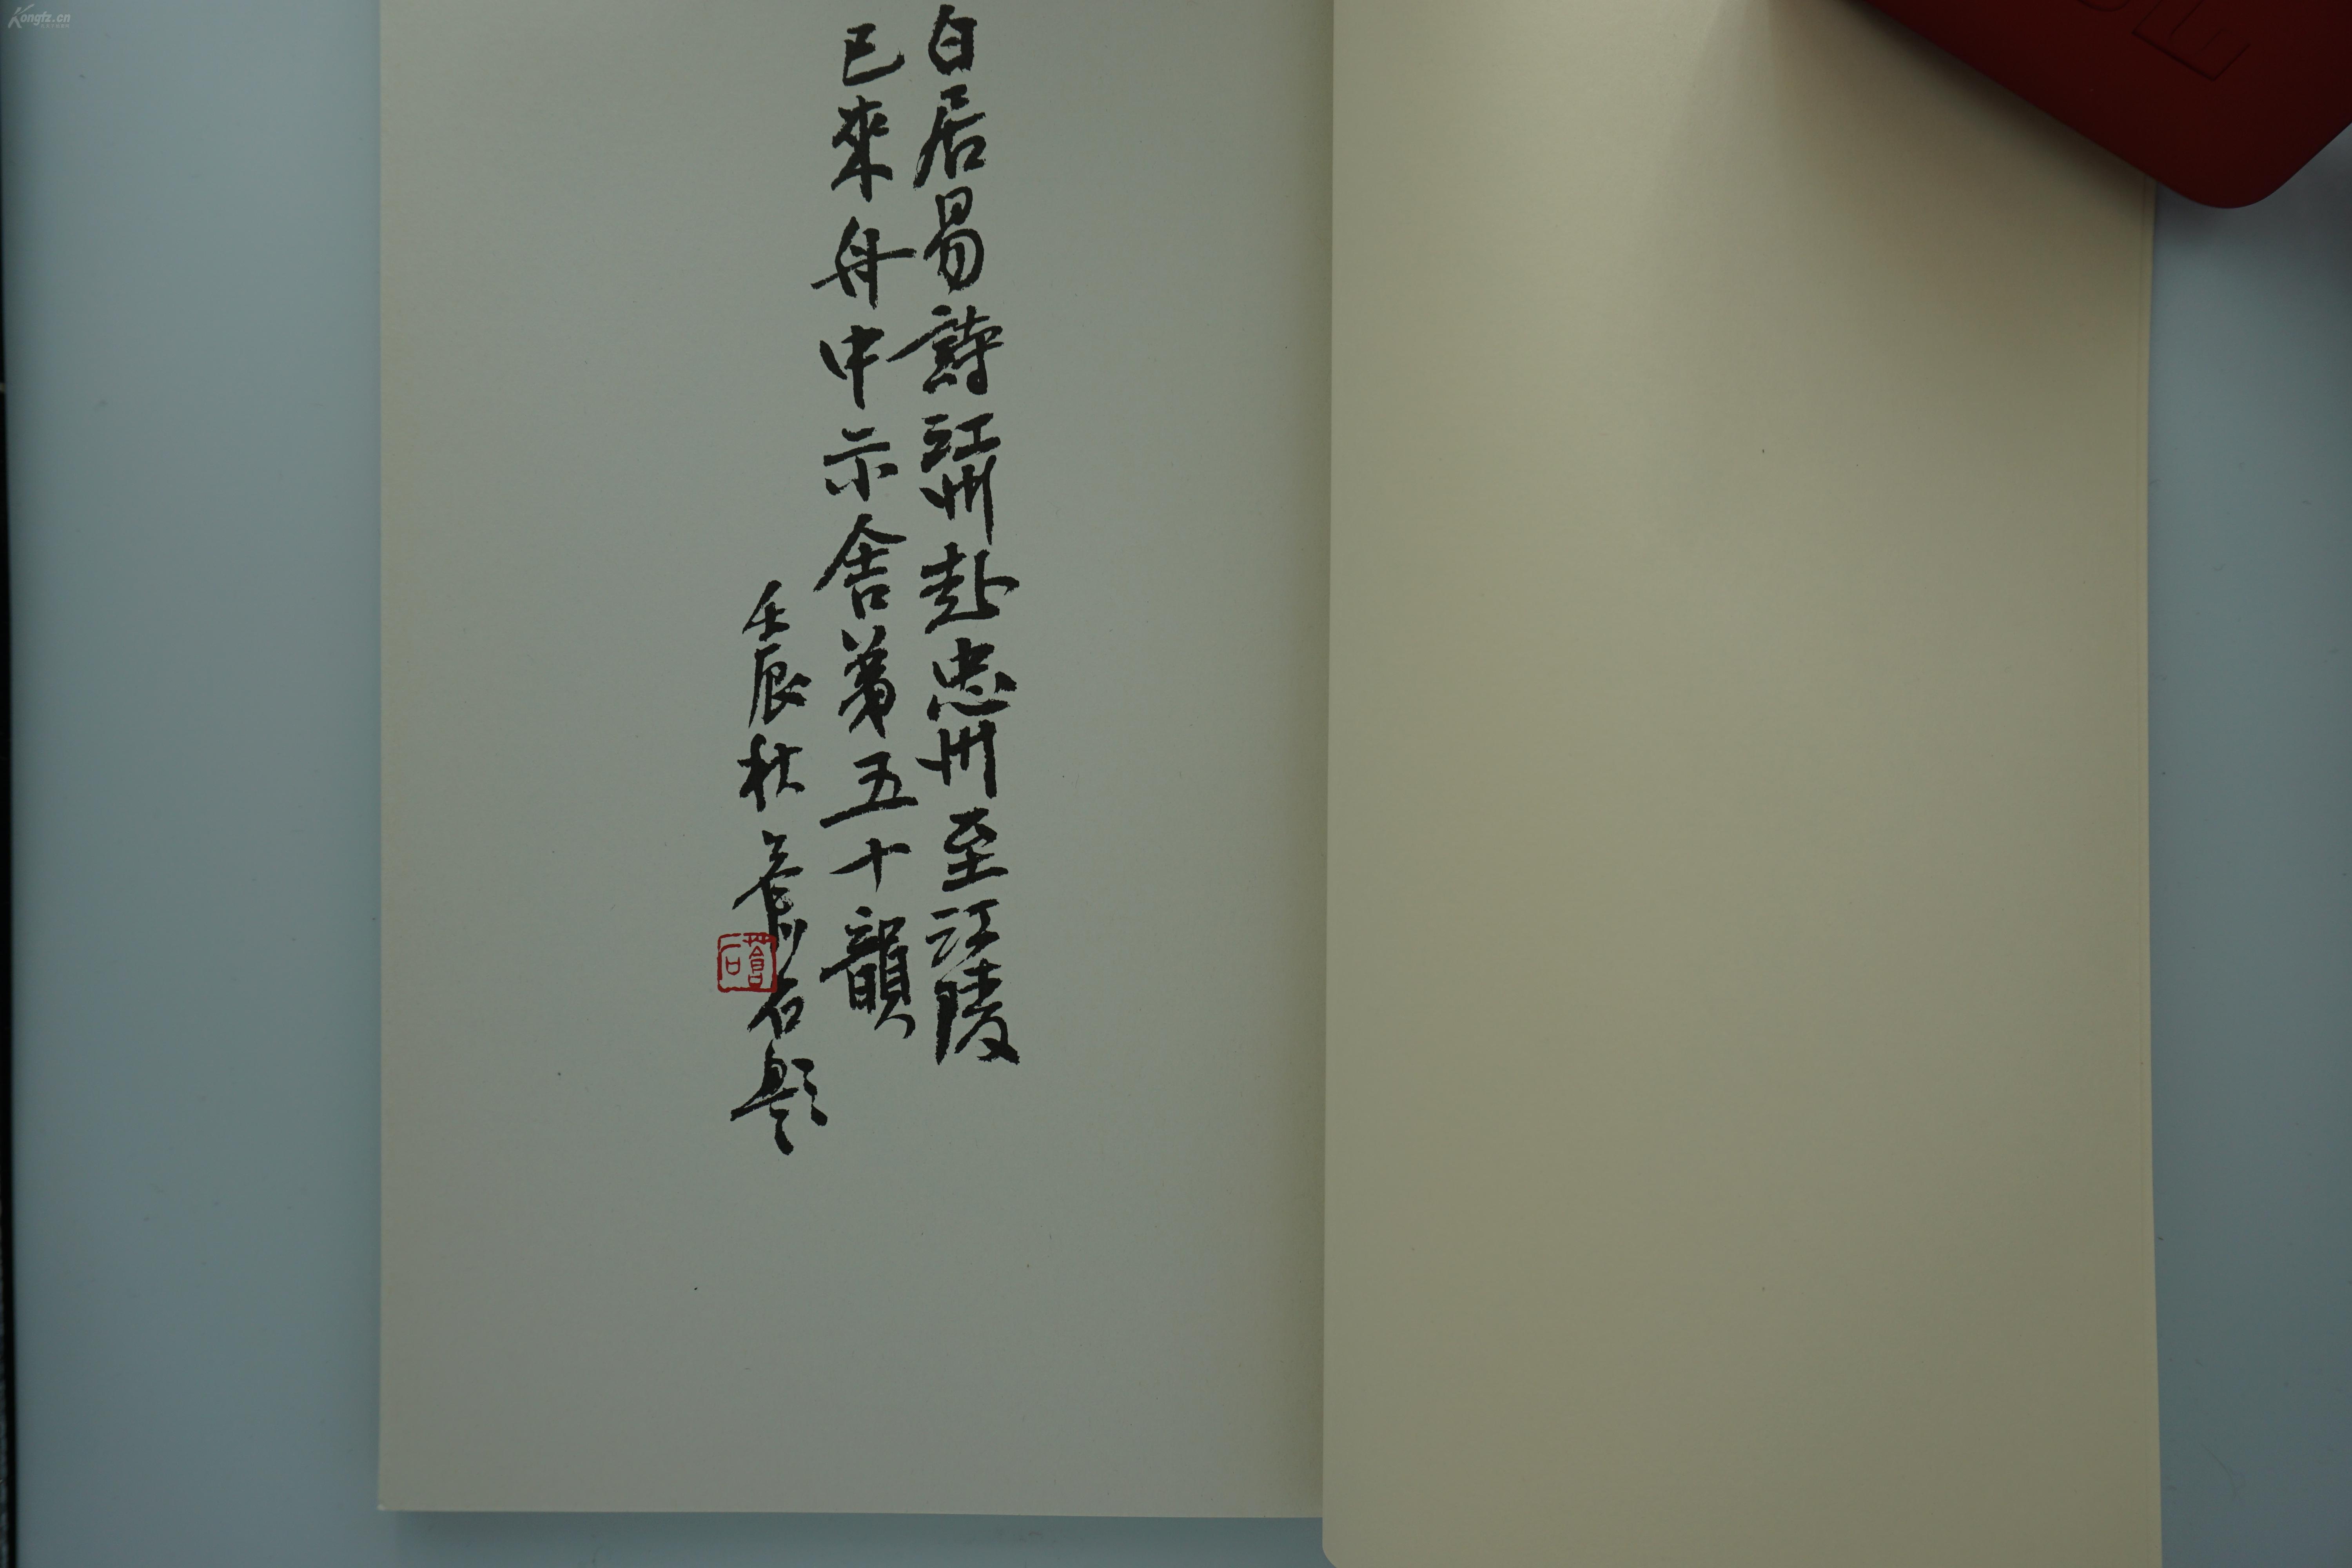 Kongfz.cn
白居易詩江州赴忠州至江陵
已來舟中示舍弟五十韻
壬辰秋 石題
石